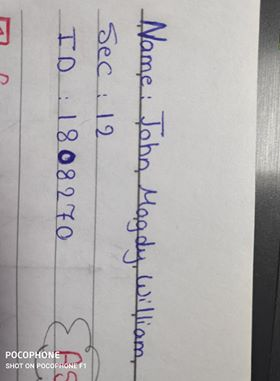 Name: John Magdy William
Sec: 12
ID: 1808270
POCOPHONE
SHOT ON POCOPHONE F1